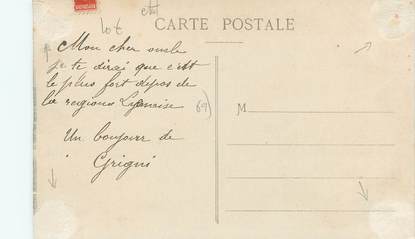 Lot
CARTE POSTALE
Mon cher oncle
je te dirai que c'est
le plus fort depos de
la regions Lyonaise
69)
M
Un bonjour de
Grigni